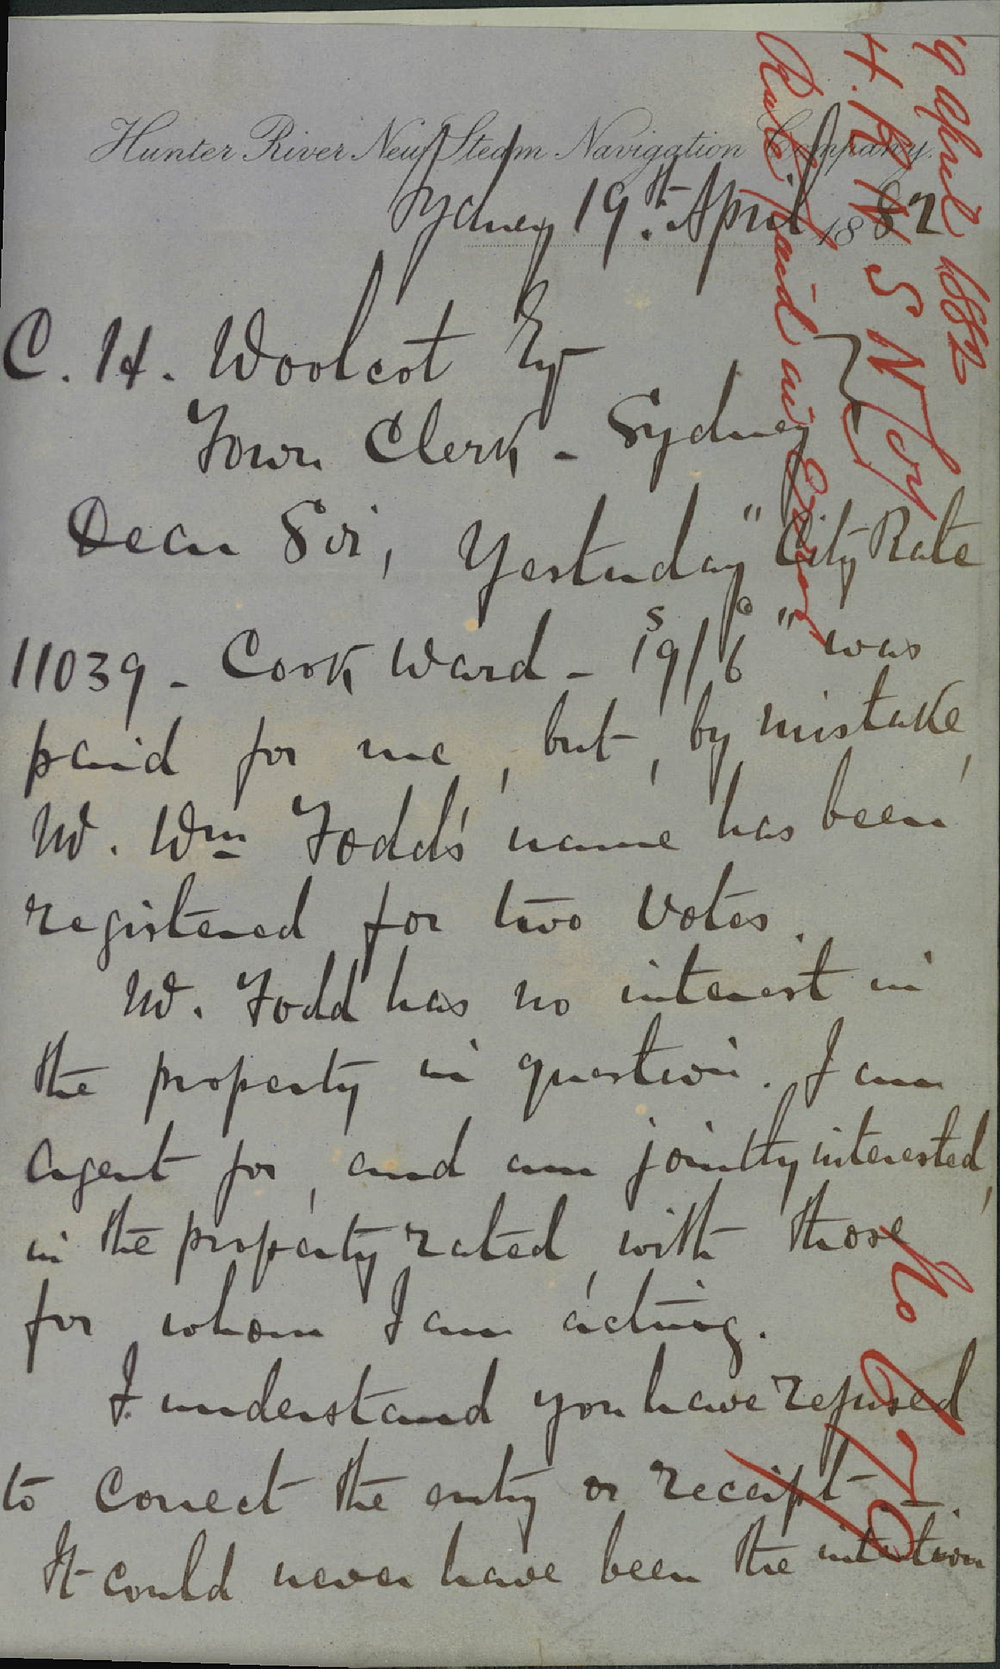 Hunter River New Steam Navigation Company.
Sydney 19th. April 1882
C. H. Woolcot Esqr
Town Clerk - Sydney }
Dear Sir, Yesterday "City Rate
11039 - Cook Ward - 19s/6d" was
paid for me, but, by mistake,
Mr. Wm Todd's name has been
registered for two votes.
Mr. Todd has no interest in
the property in question. I am
agent for, and am jointly interested,
in the property rated, with those
for whom I am acting.
I understand you have refused
to correct the entry or receipt -.
It could never have been the intention
19 April 1882
H. R. N S N Coy
Rate paid in Error
No 679